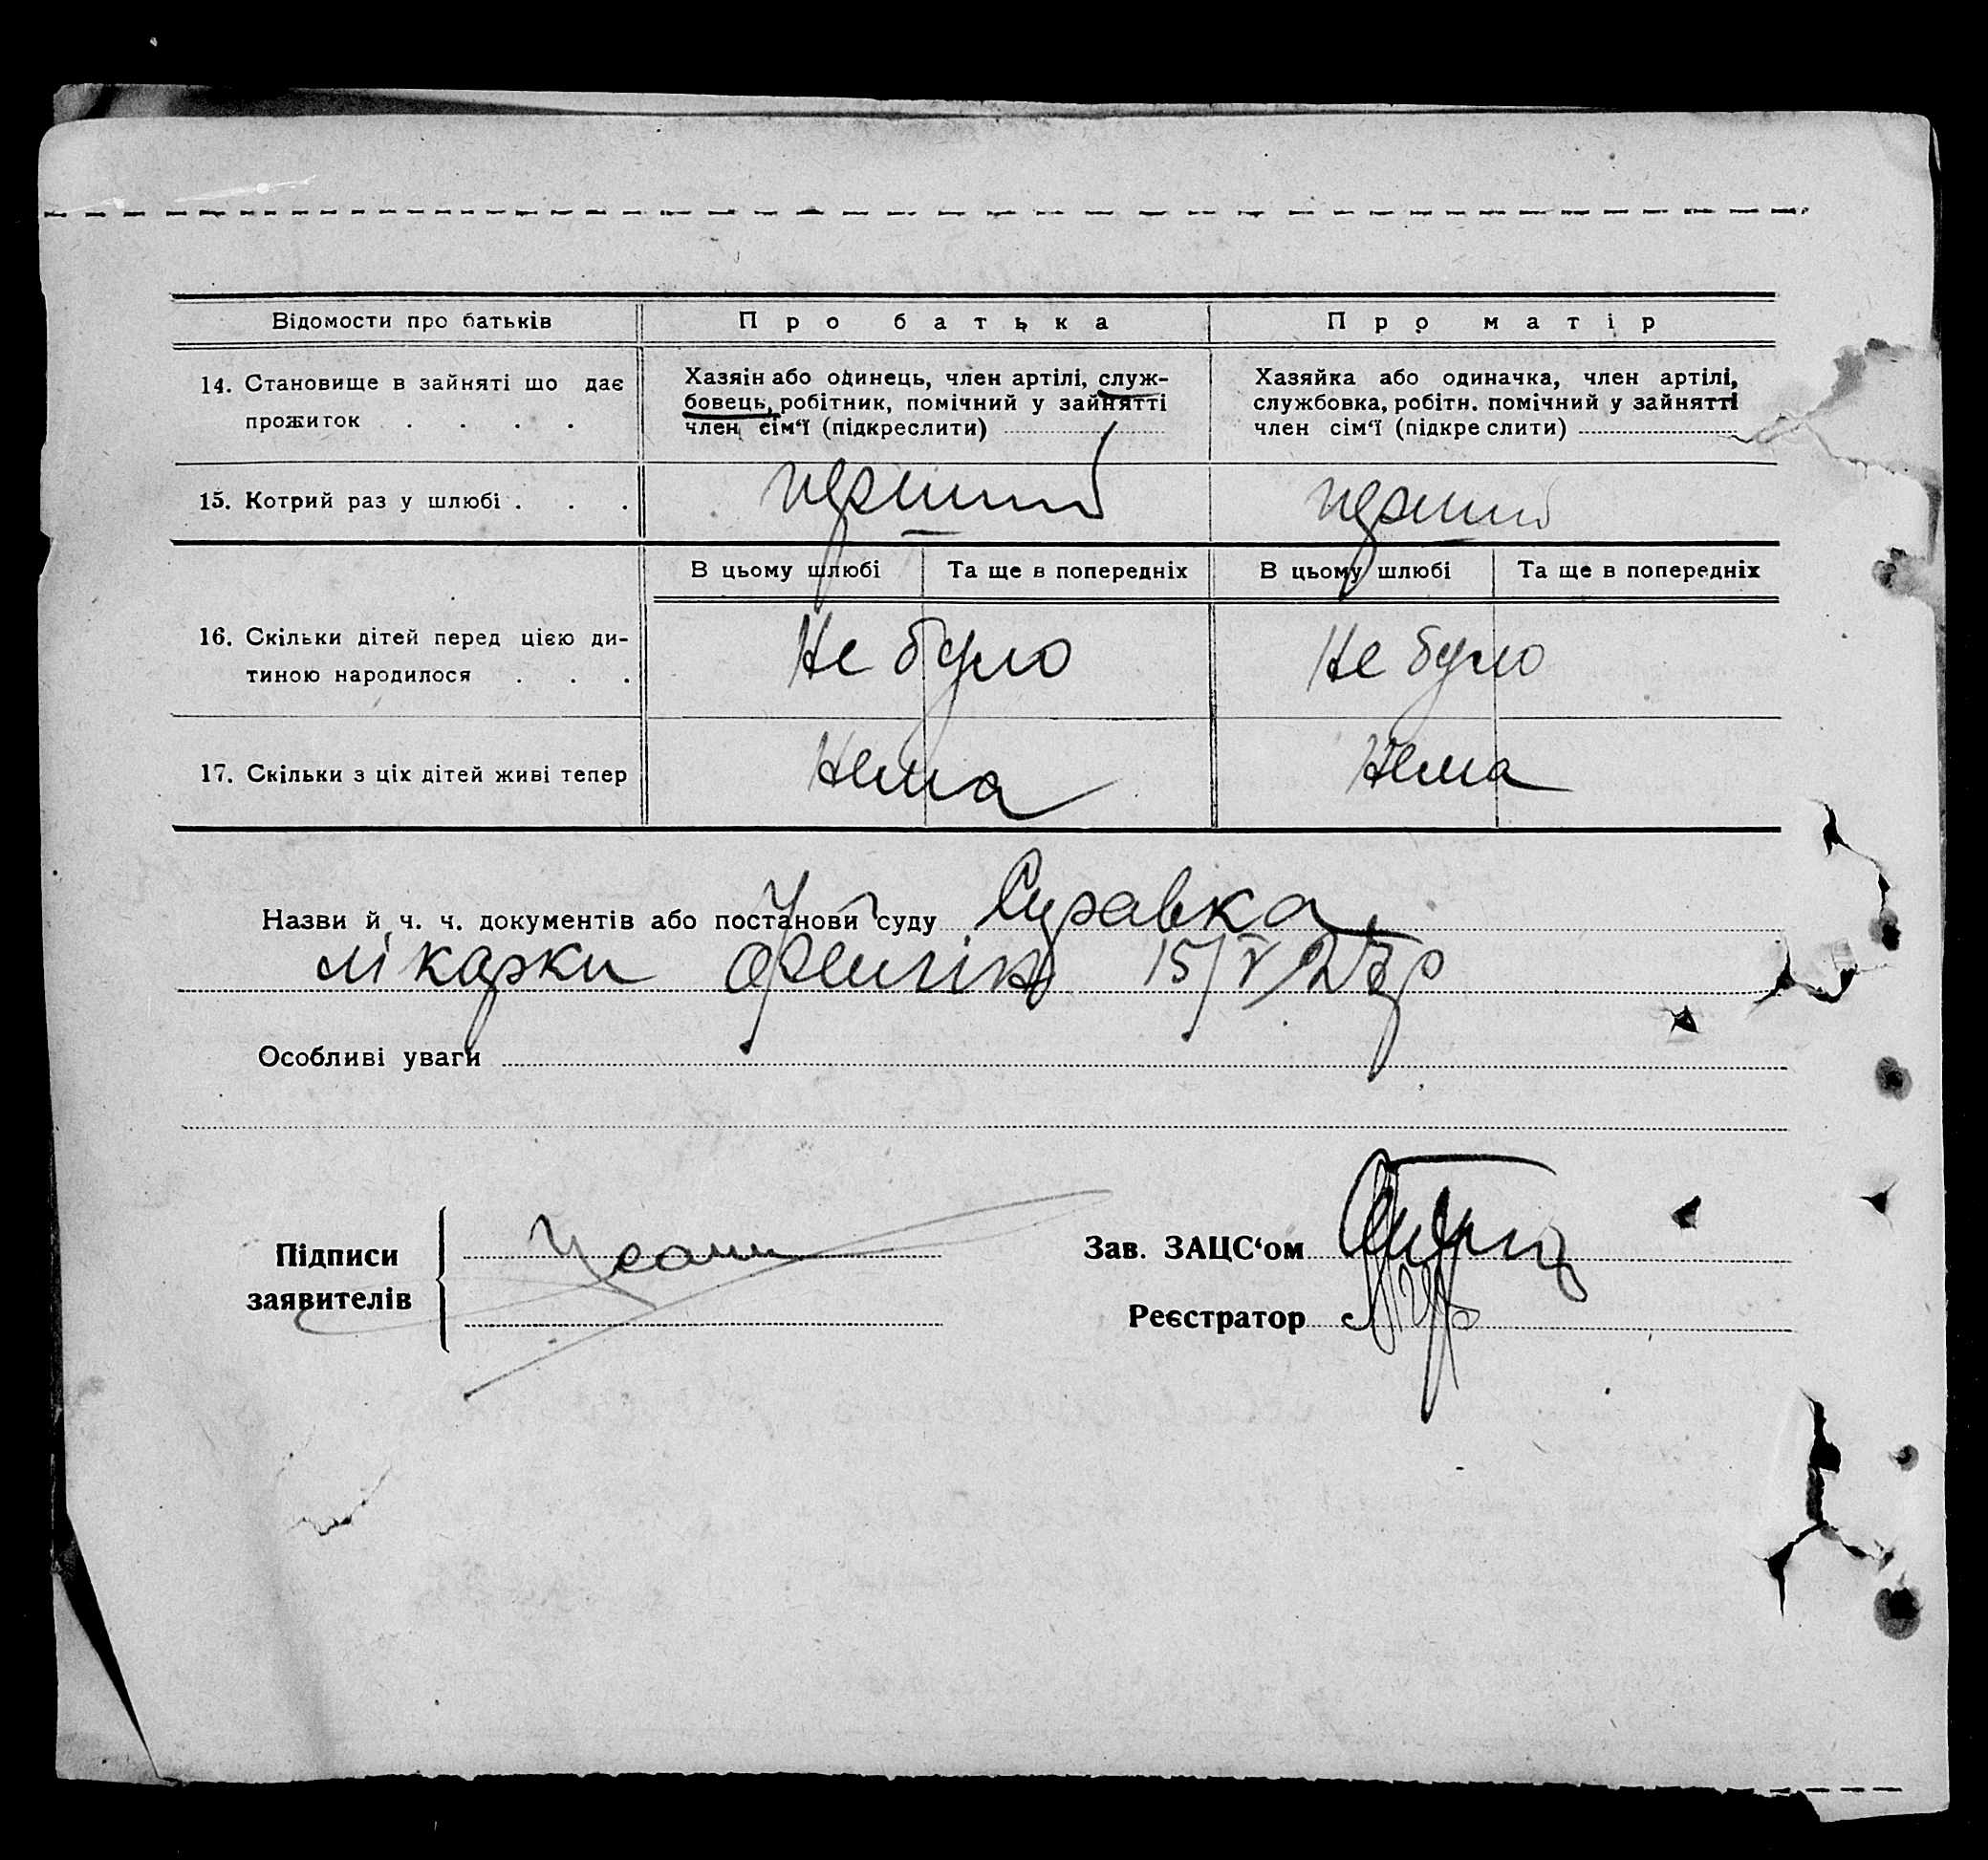 Відомости про батьків
Про батька
Про матір
14. Становище в зайняті шо дає
прожиток . . . .
Хазяін або одинець, член артілі, служ-
бовець, робітник, помічний у зайнятті
член сім‘ї (підкреслити)
Хазяйка або одиначка, член артілі,
службовка, робітн. помічний у зайнятті
член сім‘ї (підкреслити)
15. Котрий раз у шлюбі . . .
перший
перший
В цьому шлюбі
Та ще в попередніх
В цьому шлюбі
Та ще в попередніх
16. Скільки дітей перед цією ди-
тиною народилося . . .
Не було
Не було
17. Скільки з ціх дітей живі тепер
Нема
Нема
Назви й ч. ч. документів або постанови суду Справка
лікарки 15/V 27р
Особливі уваги
Підписи
заявителів
Зав. ЗАЦС‘ом
Реєстратор